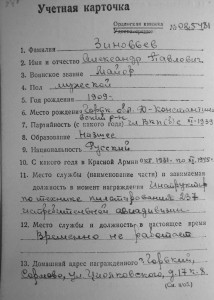 Учетная карточка
Орденская книжка
1. Фамилия Зиновьев
2. Имя и отчество Александр Павлович
3. Воинское звание Майор
4. Пол мужской
5. Год рождения 1909
6. Место рождения Горьк. обл. Д-Константиновский р-н
7. Партийность (с какого года) чл. ВКП(б) с 1939
8. Образование Низшее
9. Национальность Русский
10. С какого года в Красной Армии
11. Место службы (наименование части) и занимаемая
должность в момент награждения Инструктор
по технике пилотирования 637
истребительной авиадивизии
12. Место службы и должность в настоящее время
Временно не работает
13. Домашний адрес награжденного г. Горький,
Сормово, ул. д. 17 кв. 8.
(См. об.)